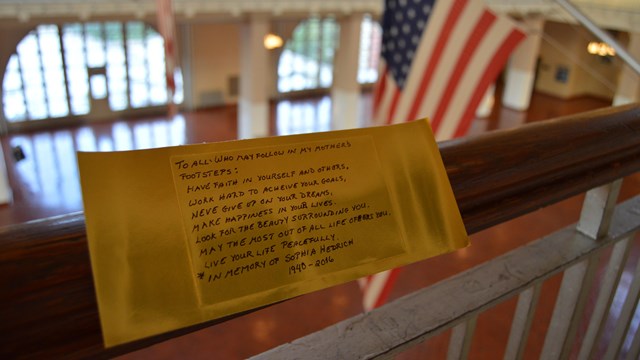 TO ALL WHO MAY FOLLOW IN MY MOTHERS
FOOTSTEPS:
HAVE FAITH IN YOURSELF AND OTHERS,
WORK HARD TO ACHEIVE YOUR GOALS,
NEVE GIVE UP ON YOUR DREAMS,
MAKE HAPPINESS IN YOUR LIVES.
LOOK FOR THE BEAUTY SURROUNDING YOU.
MAY THE MOST OUT OF ALL LIFE OFFERS YOU.
LIVE YOUR LIFE PEACEFULLY.
* IN MEMORY OF SOPHIA HEDRICH
1940-2016